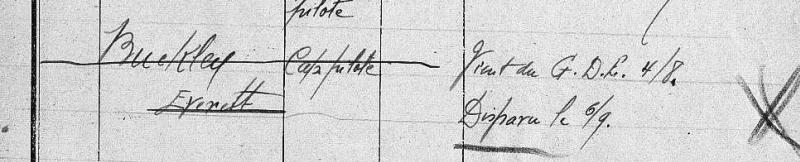 pilote
Buckley Cap pilote Vient du G.D.E. 4/8.
Everett Disparu le 6/9.